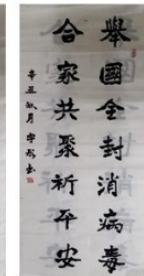 舉國全封消病毒
合家共聚祈平安
辛丑秋月